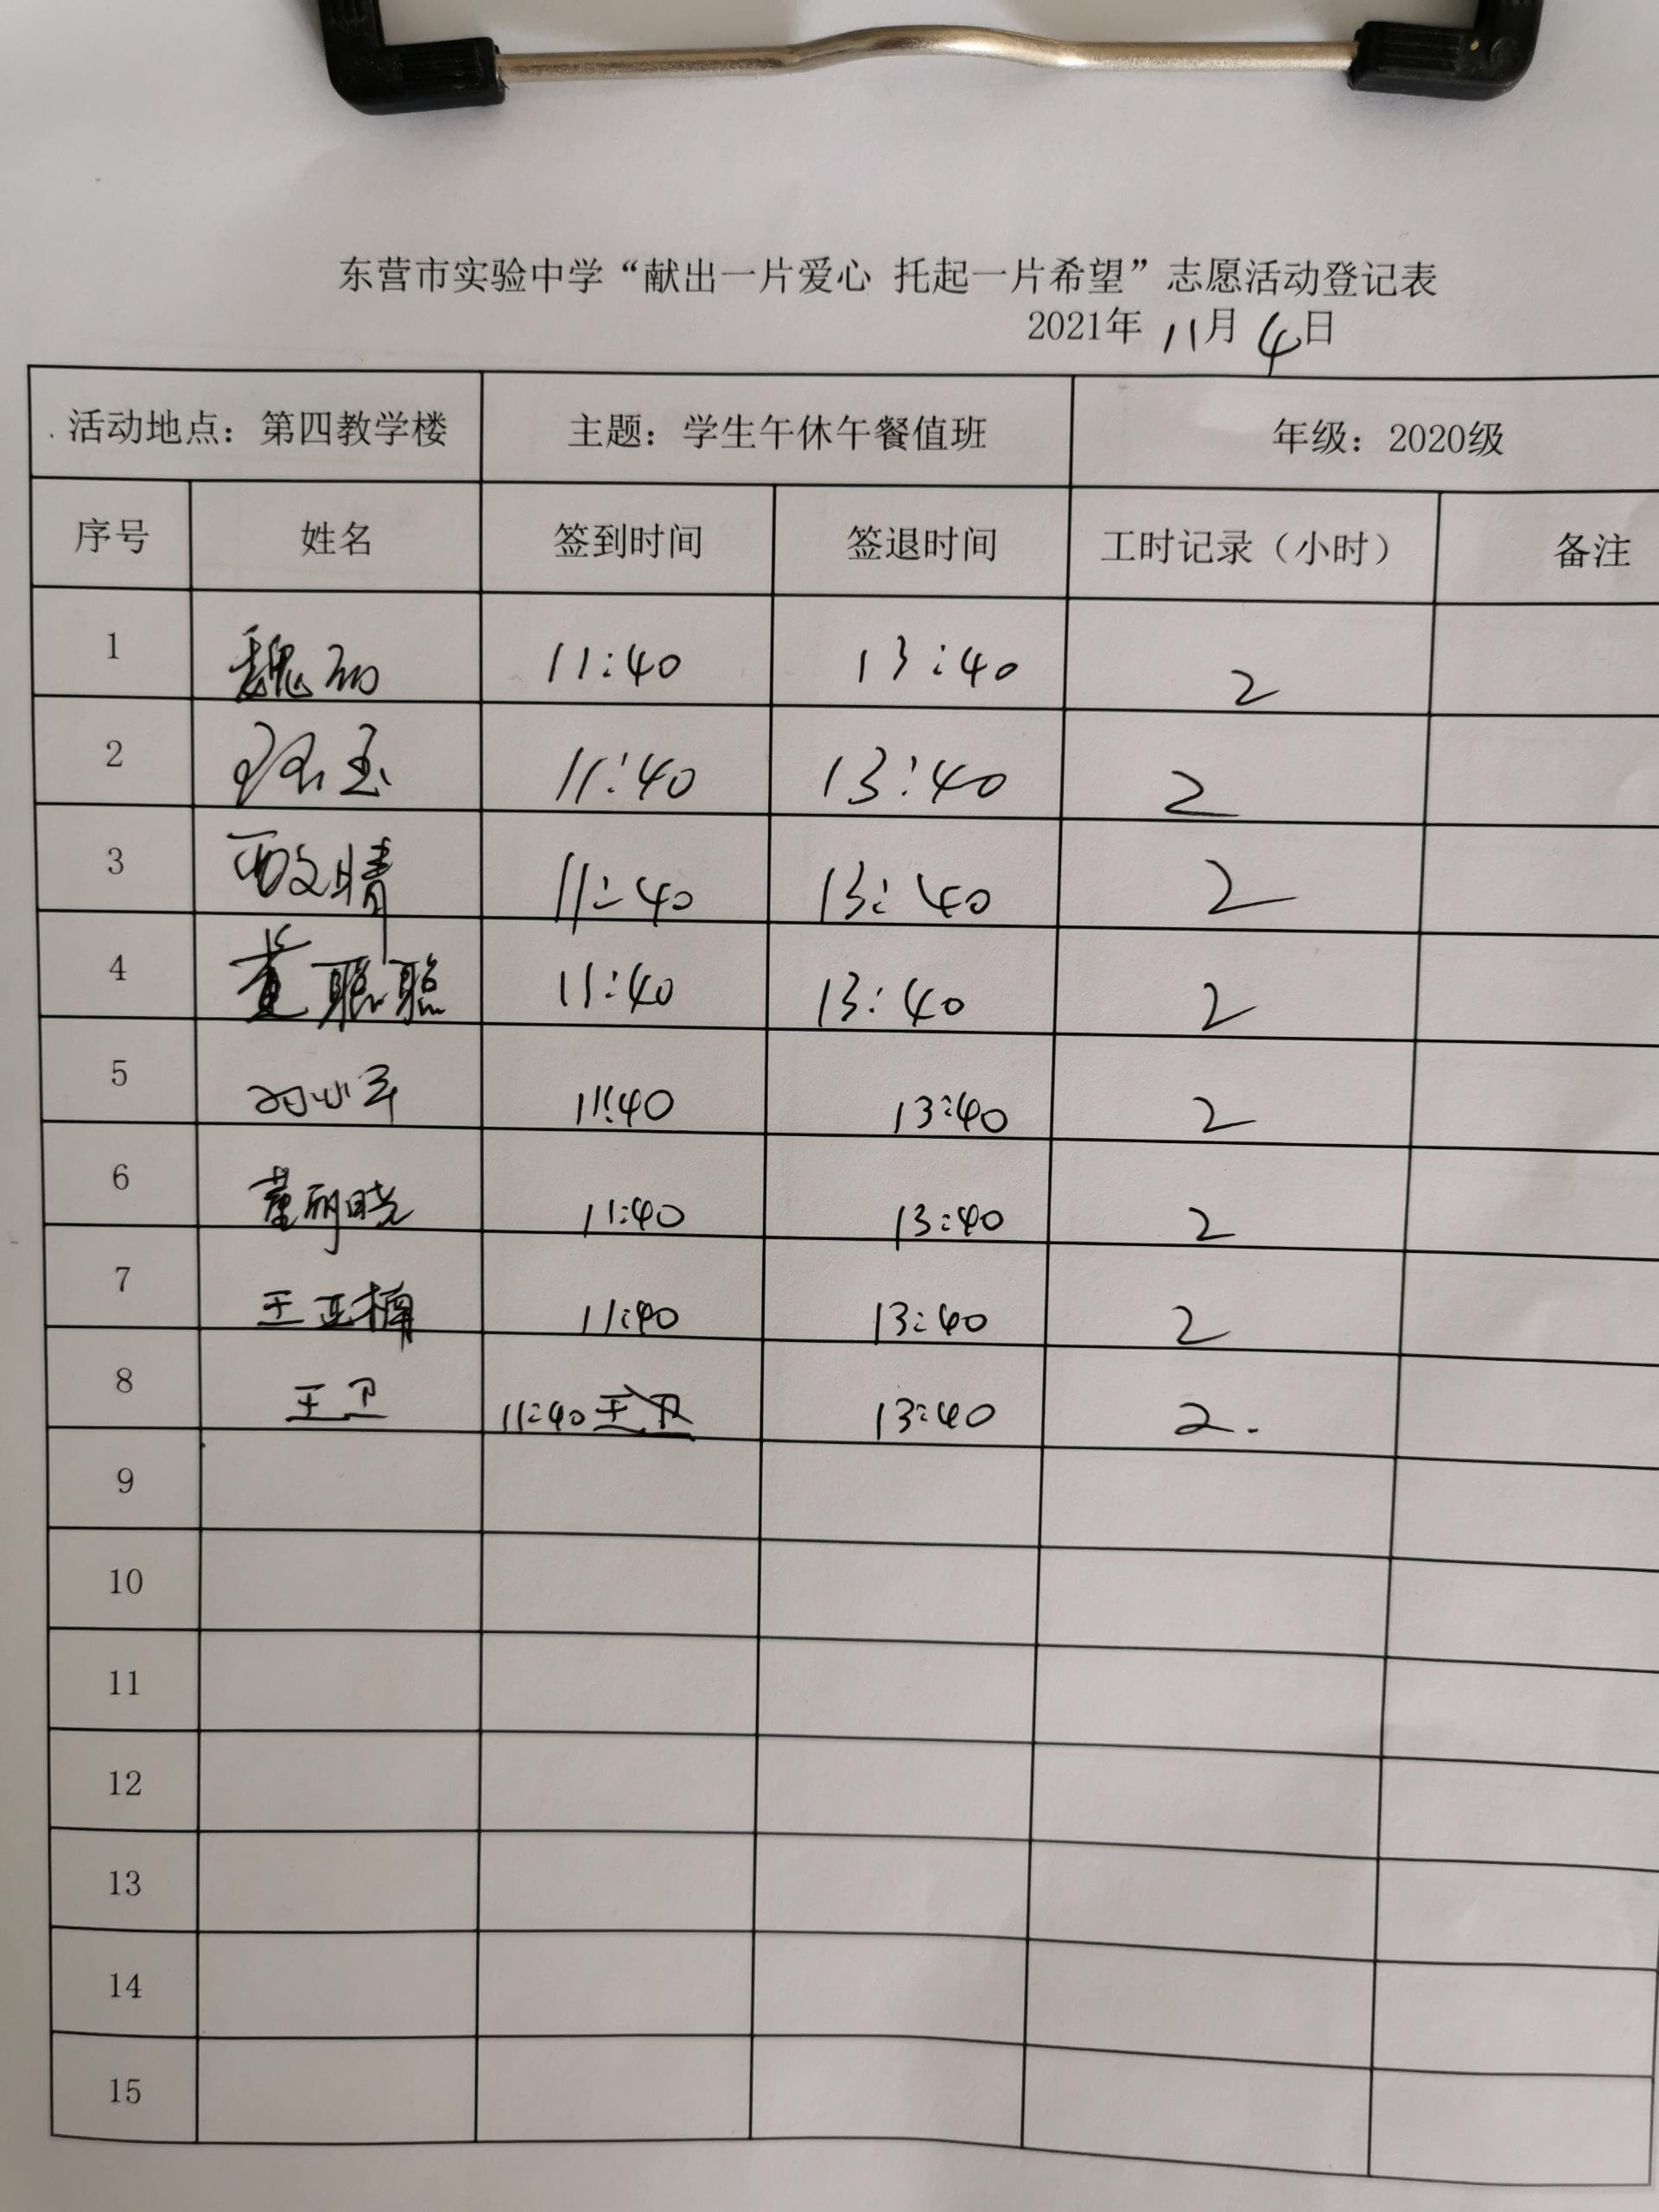 东营市实验中学“献出一片爱心 托起一片希望”志愿活动登记表
2021年 11月 4日
活动地点：第四教学楼 主题：学生午休午餐值班 年级：2020级
序号 姓名 签到时间 签退时间 工时记录（小时） 备注
1 魏丽 11:40 13:40 2
2 11:40 13:40 2
3 文晴 11:40 13:40 2
4 黄聪聪 11:40 13:40 2
5 11:40 13:40 2
6 董丽晓 11:40 13:40 2
7 王亚楠 11:40 13:40 2
8 王卫 11:40 王卫 13:40 2.
9
10
11
12
13
14
15